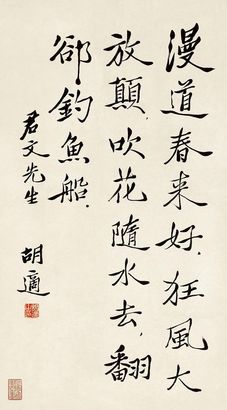 漫道春来好.狂風大
放顛.吹花隨水去.翻
郤釣魚船.
君文先生
胡適